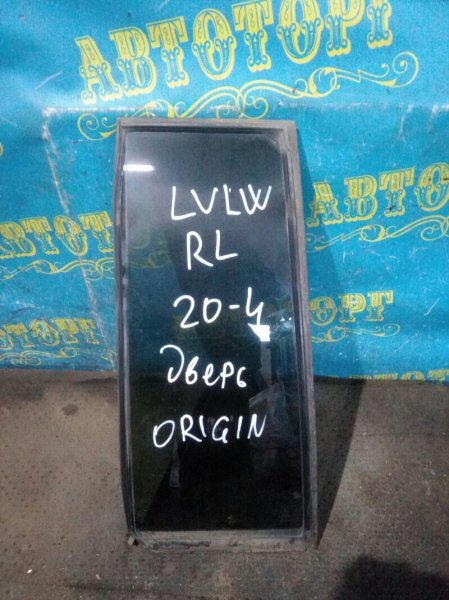 АВТОТОРГ
АВТОТОРГ
АВТОТОРГ
АВТОТОРГ
LVLW
RL
20-4
дверь
ORIGIN